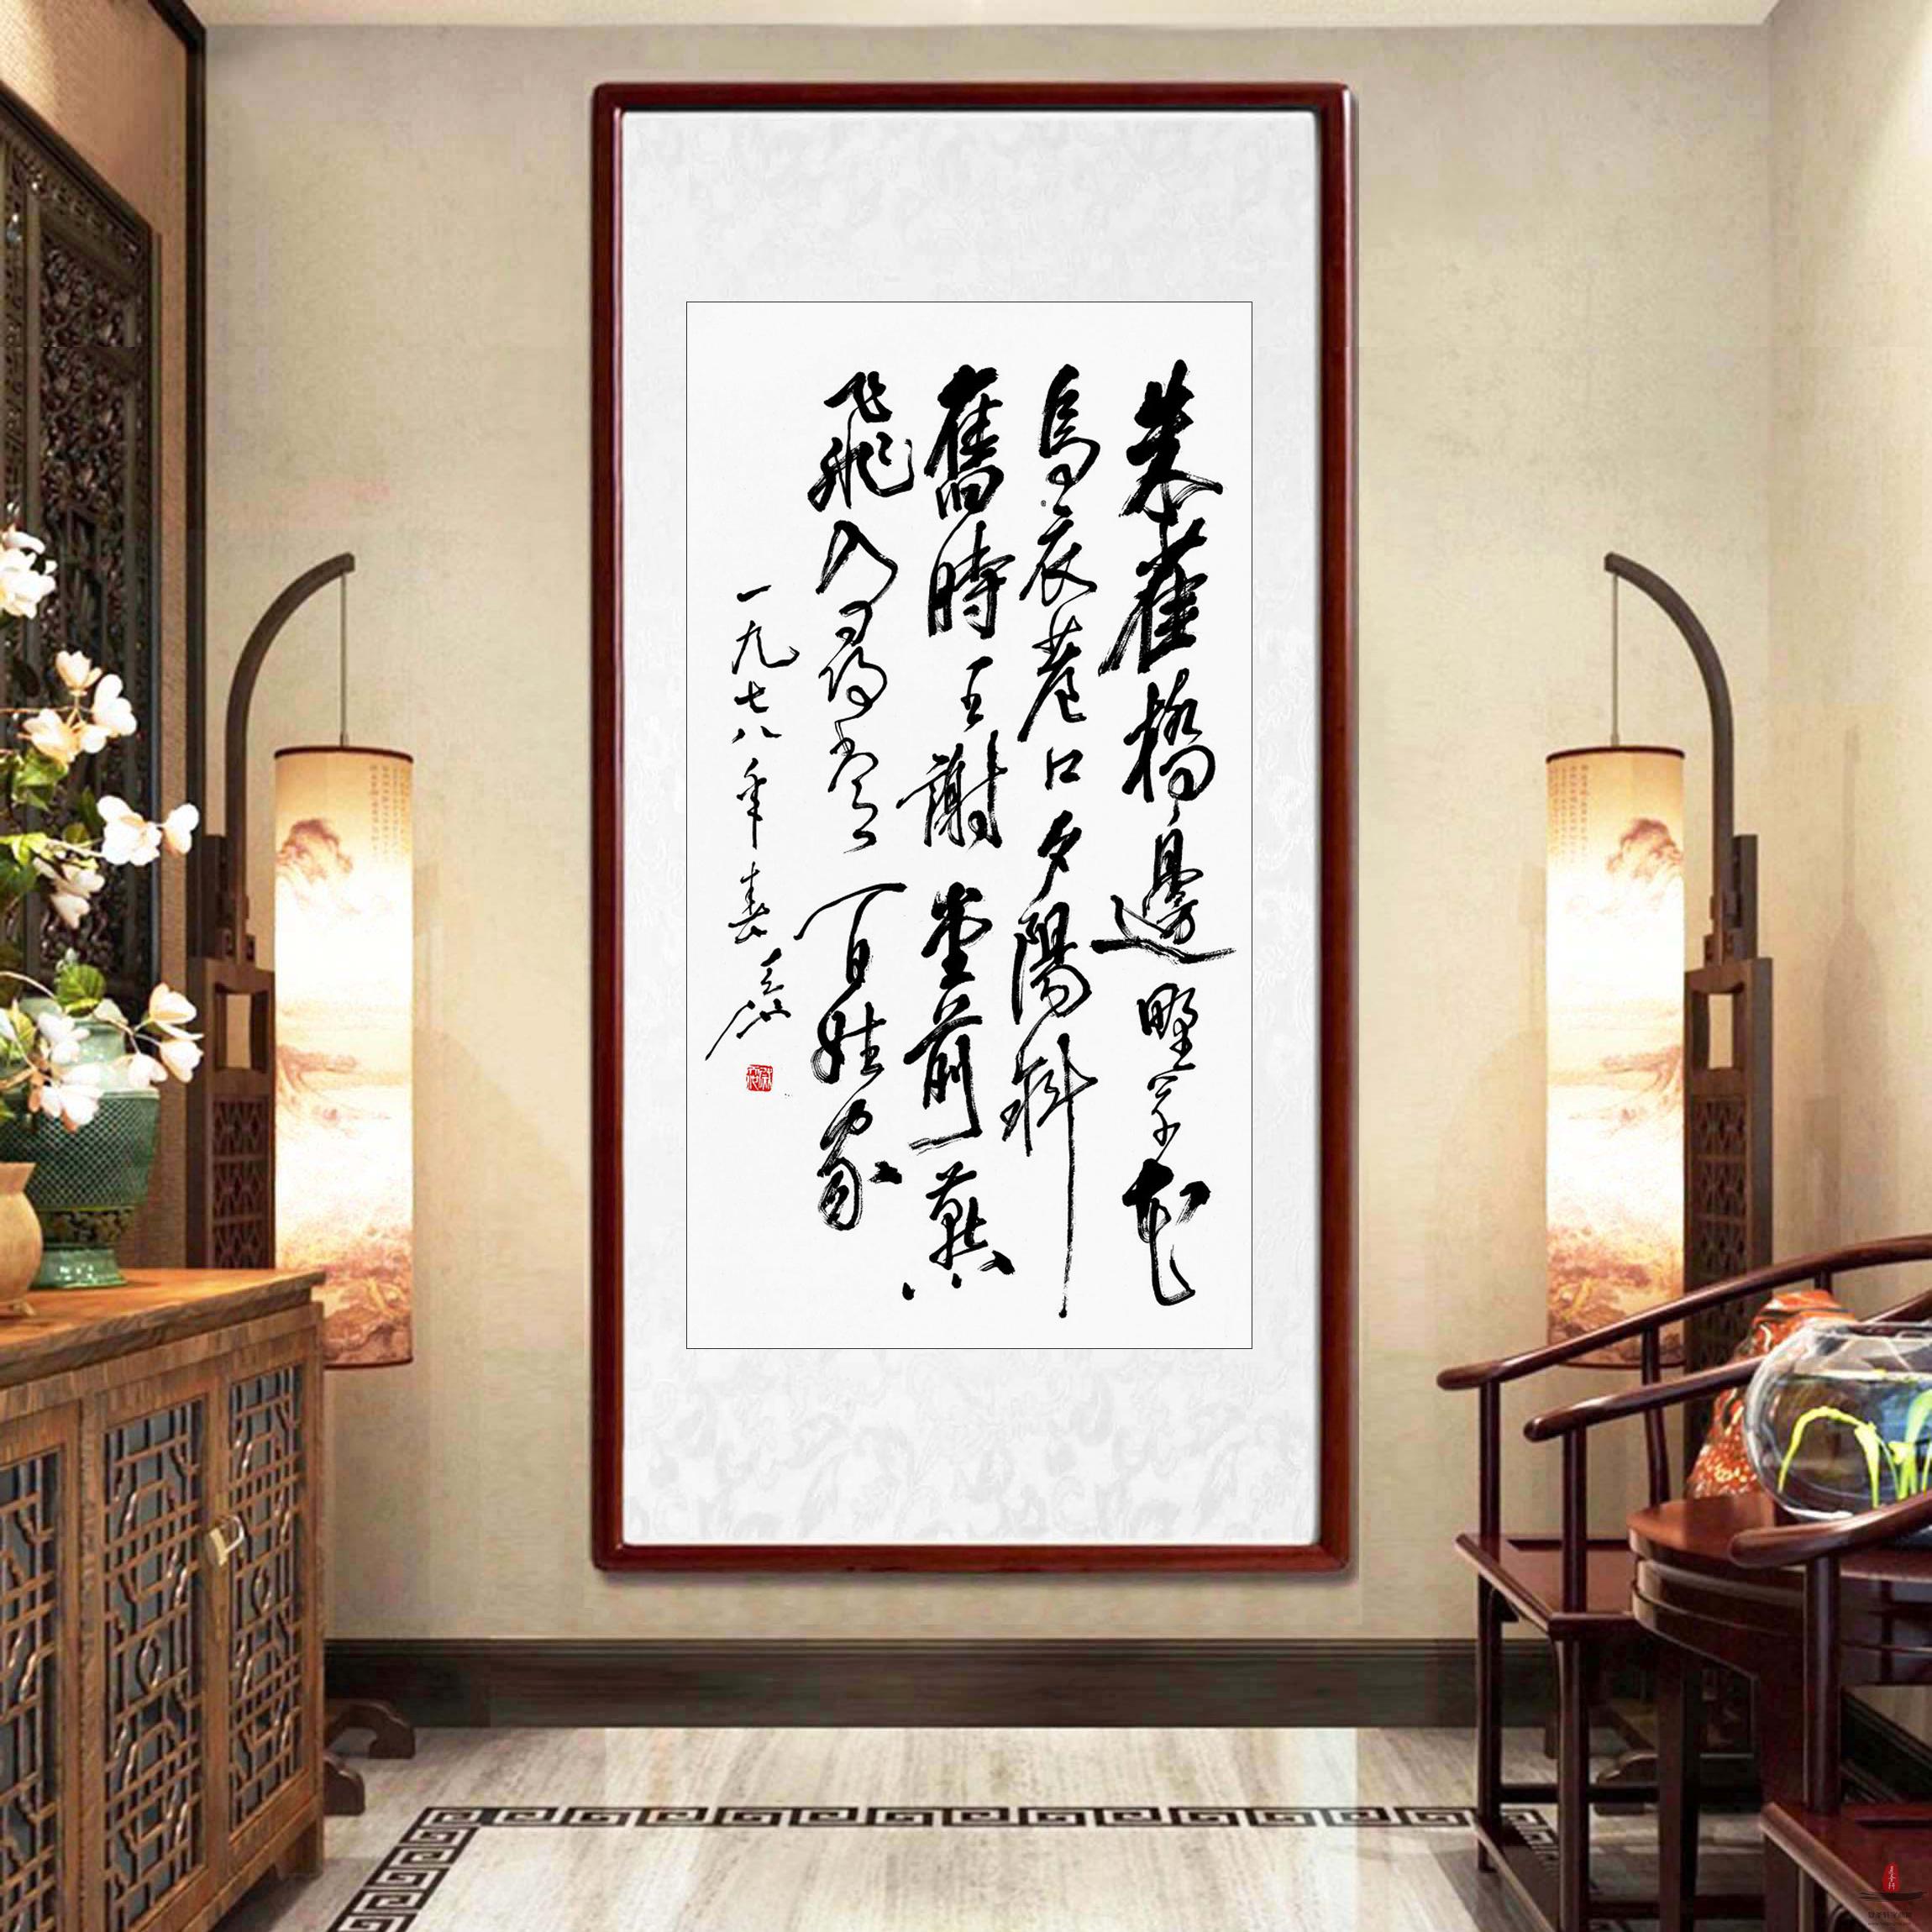 朱雀橋邊野草花
烏衣巷口夕陽斜
舊時王謝堂前燕
飛入尋常百姓家
一九七八年春